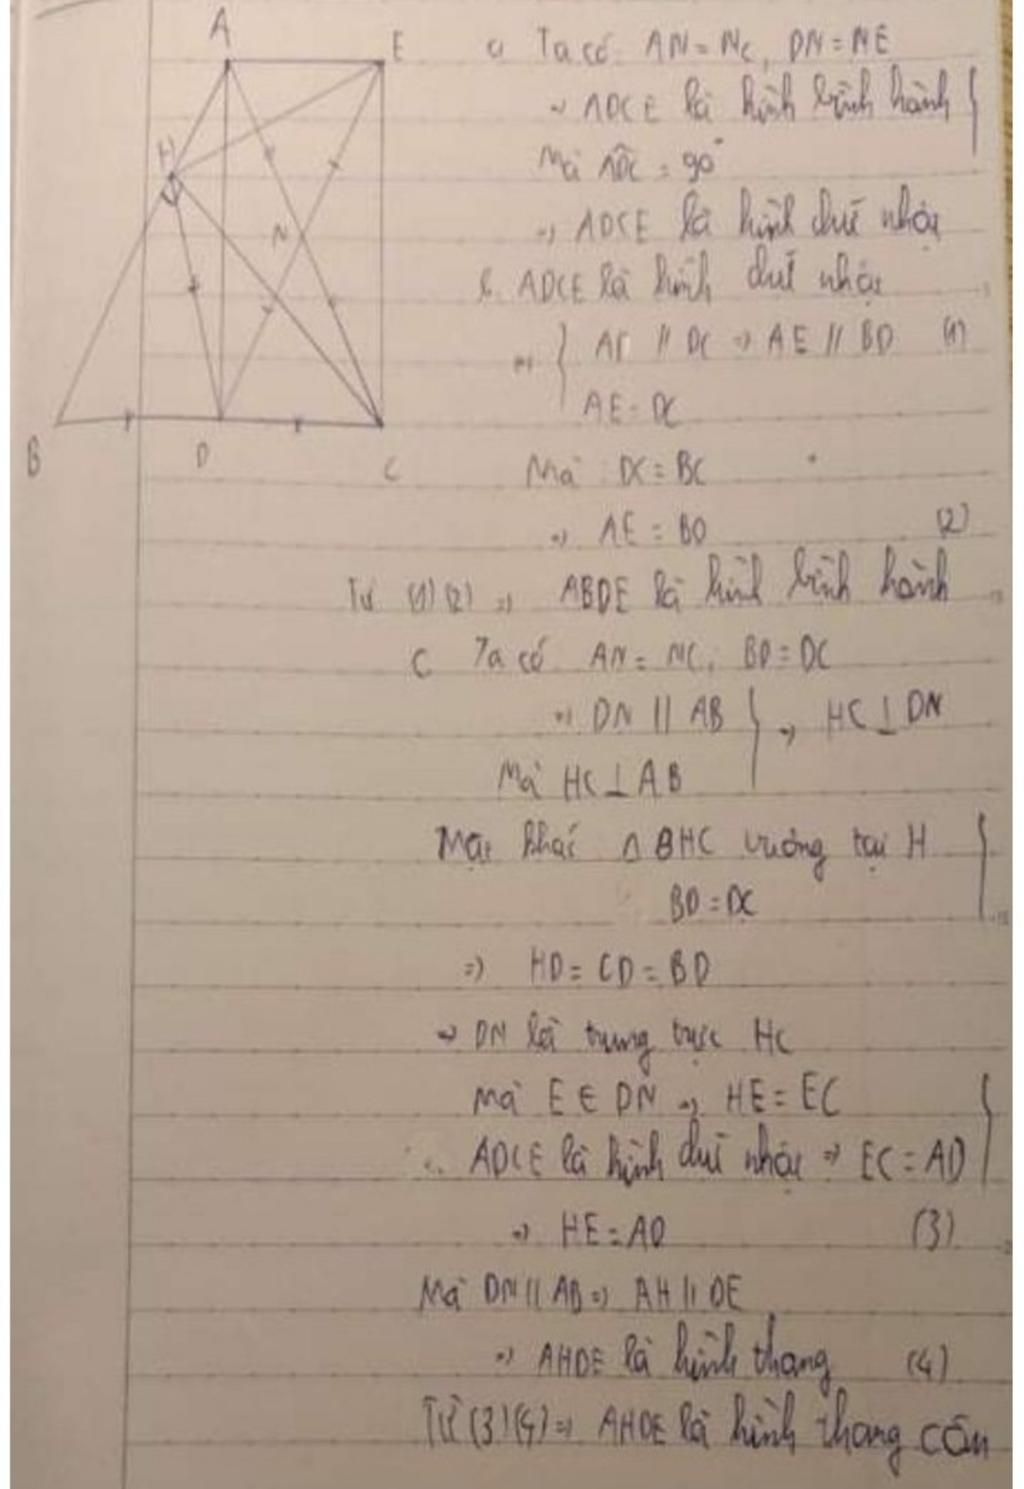 A
E
H
N
B
D
C
a Ta có AN = NC, DN = NE
→ ADCE là hình bình hành }
Mà ADC = 90°
=> ADCE là hình chữ nhật
b. ADCE là hình chữ nhật
=> { AE // DC => AE // BD (1)
AE = DC
Mà DC = BC
=> AE = BD (2)
Từ (1) (2) => ABDE là hình bình hành
C Ta có AN = NC, BD = DC
=> DN // AB } => HC ⊥ DN
Mà HC ⊥ AB
Mặt khác Δ BHC vuông tại H }
BD = DC
=> HD = CD = BD
→ DN là trung trực HC
Mà E ∈ DN => HE = EC }
ADCE là hình chữ nhật => EC = AD
=> HE = AD (3)
Mà DN // AB => AH // DE
=> AHDE là hình thang (4)
Từ (3) (4) => AHDE là hình thang cân